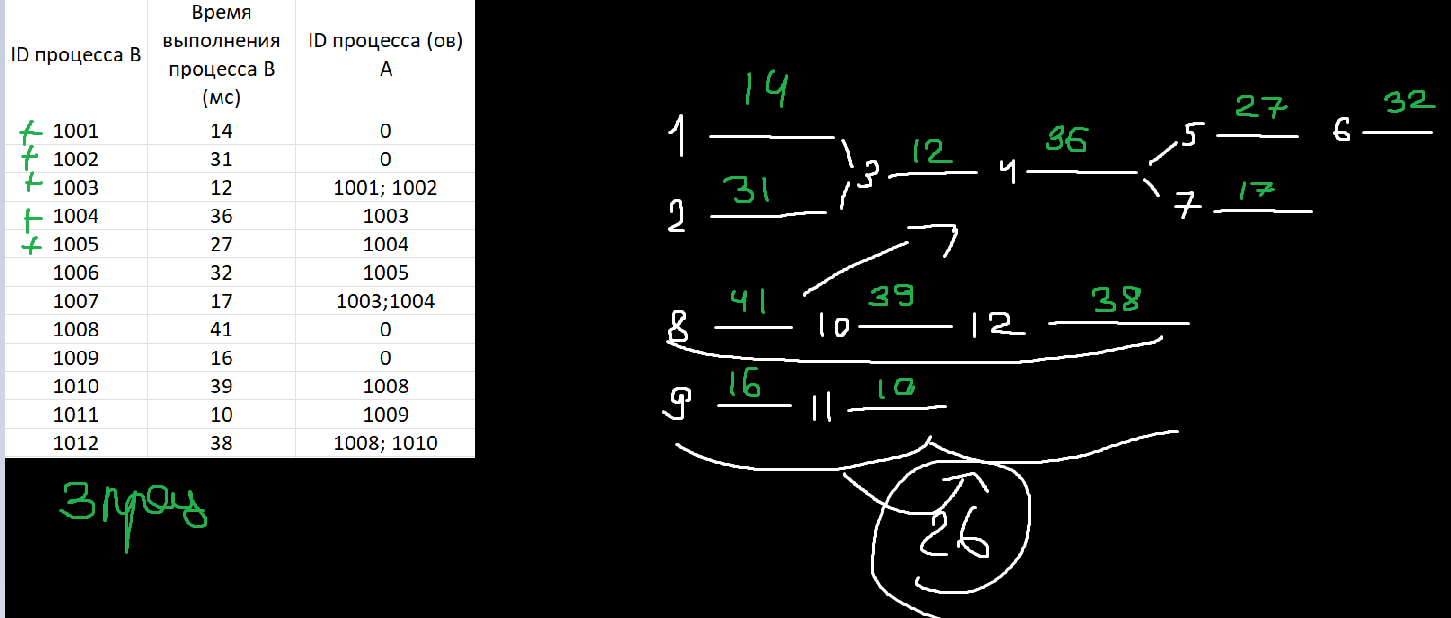 ID процесса B Время выполнения процесса B (мс) ID процесса (ов) A
+ 1001 14 0
+ 1002 31 0
+ 1003 12 1001; 1002
+ 1004 36 1003
+ 1005 27 1004
1006 32 1005
1007 17 1003;1004
1008 41 0
1009 16 0
1010 39 1008
1011 10 1009
1012 38 1008; 1010
3 проц
1 14
2 31
3 12
4 36
5 27
6 32
7 17
8 41 10 39 12 38
9 16 11 10
26